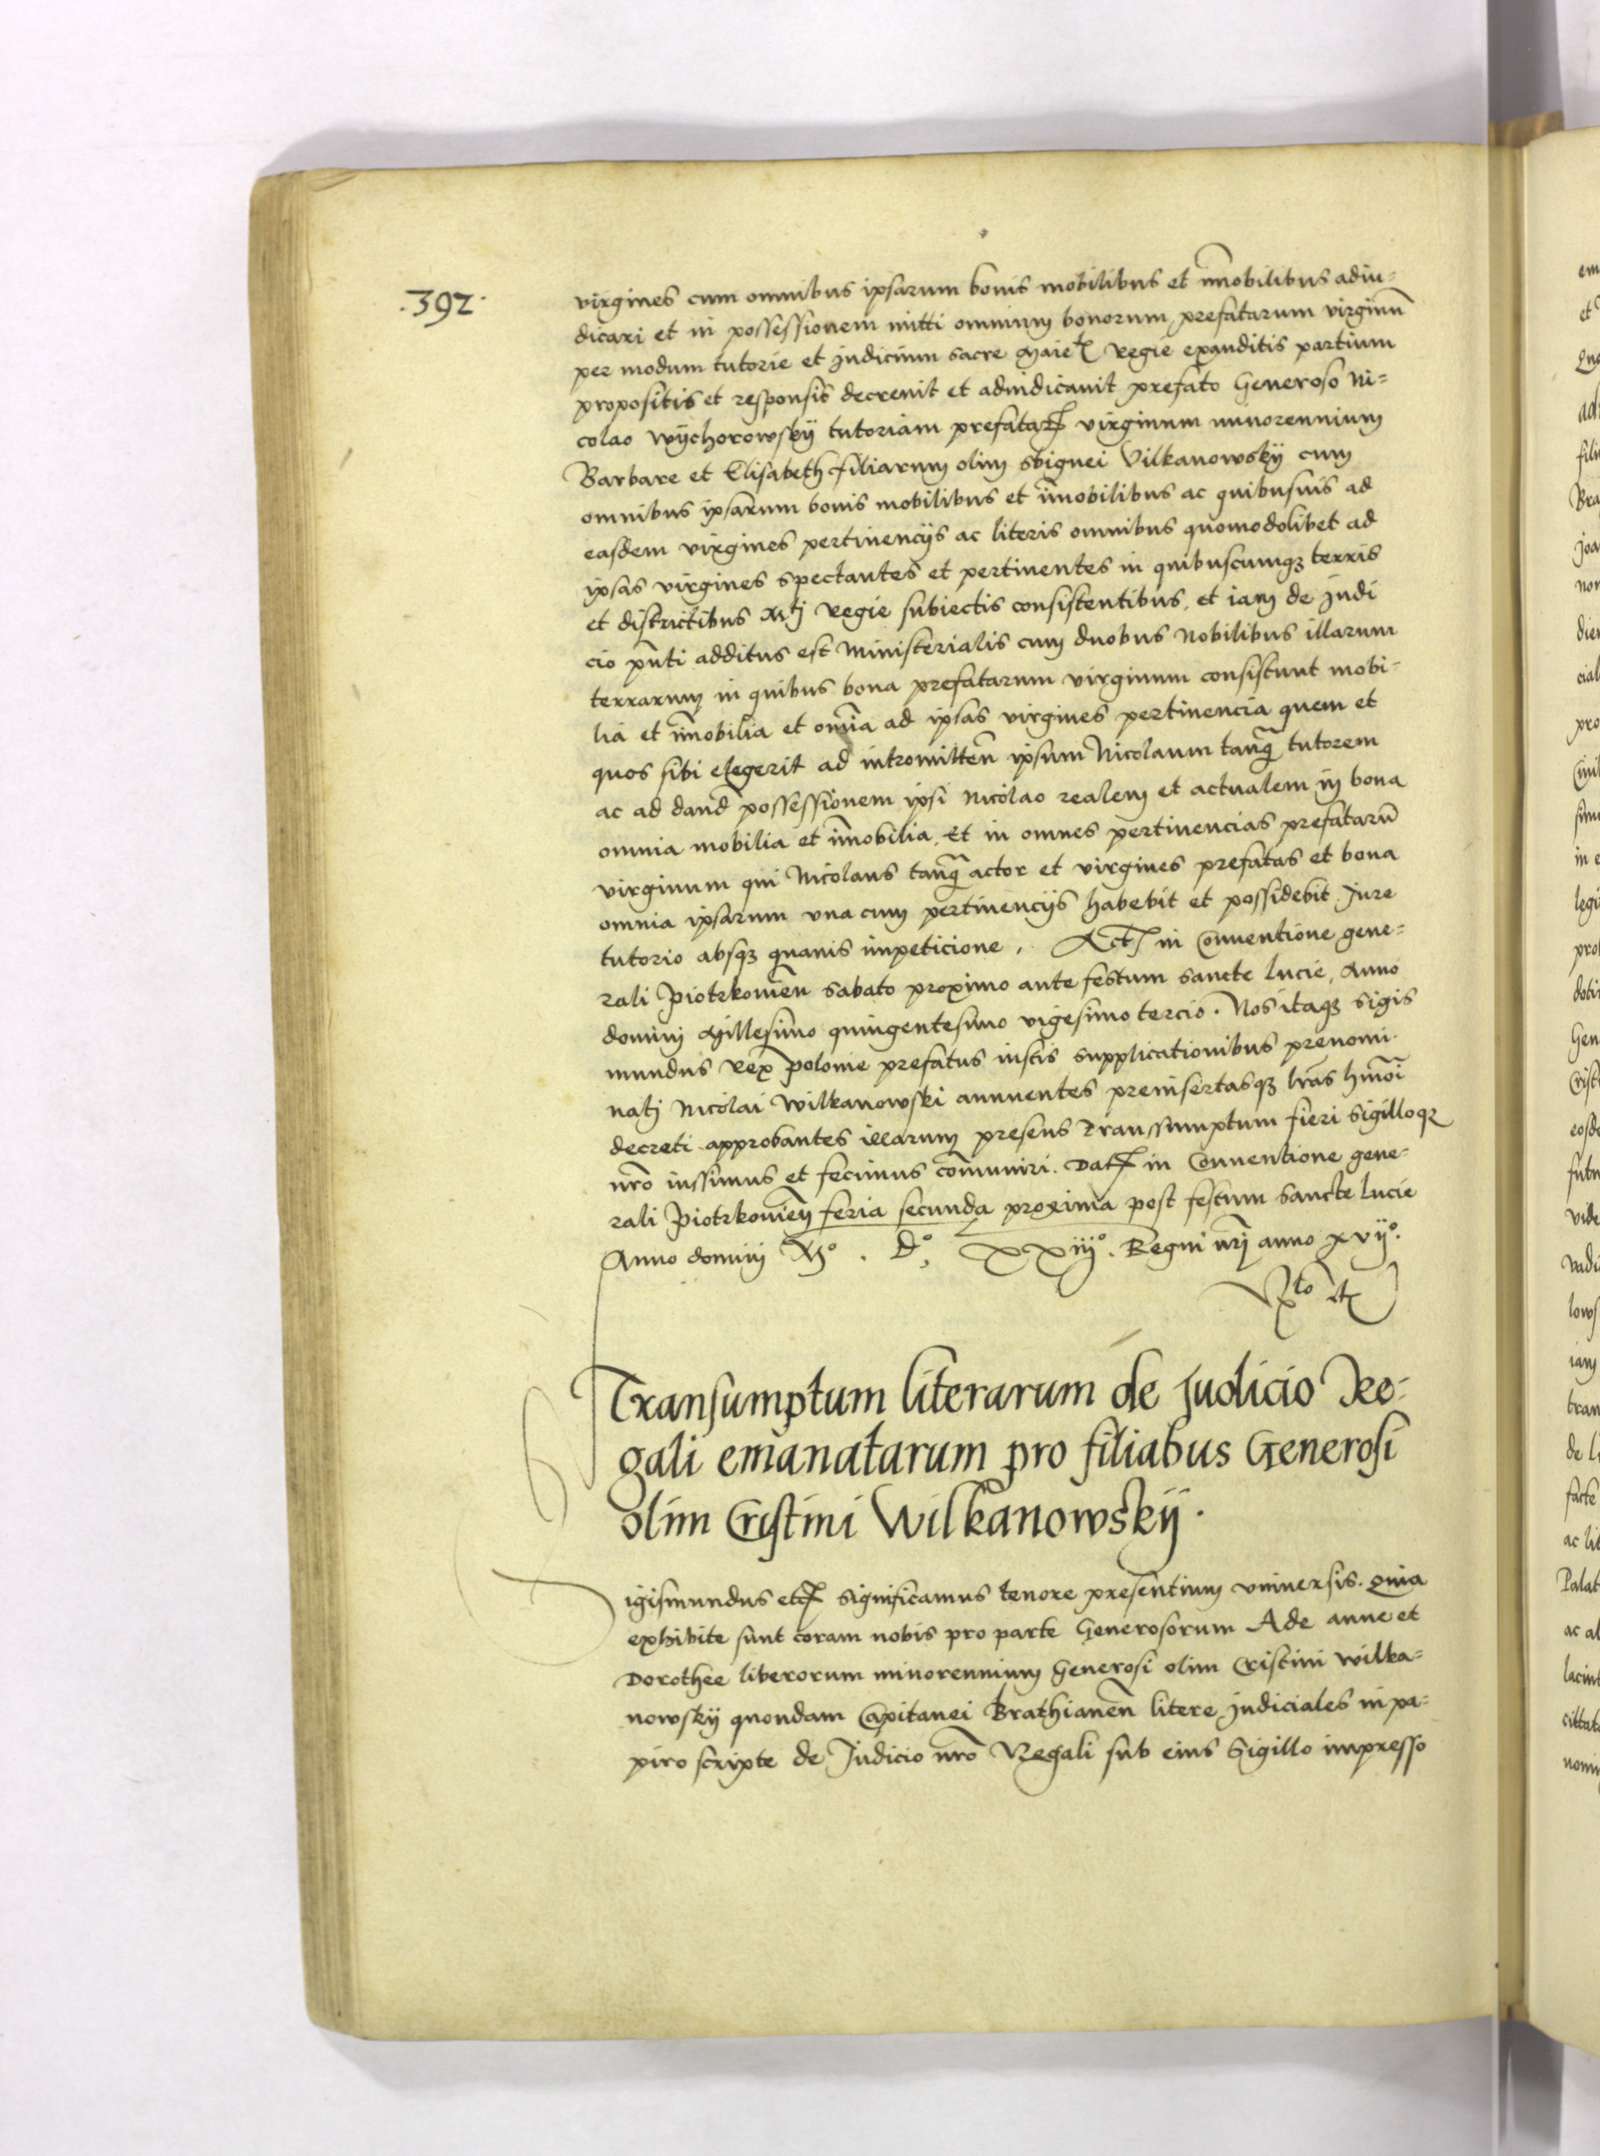 .392.
virgines cum omnibus ipsarum bonis mobilibus et īmobilibus adiu-
dicari et in possessionem mitti omnium bonorum prefatarum virginū
per modum tutorie et Judicium sacre Maie​t​ Regie exauditis partium
propositis et responsis decrevit et adiudicavit prefato Generoso Ni-
colao Wychorowskÿ tutoriam prefataꝝ virginum minorennium
Barbare et Elisabeth filiarum olim Sbignei Vilkanowskÿ cum
omnibus ipsarum bonis mobilibus et īmobilibus ac quibusuis ad
easdem virgines pertinencÿs ac literis omnibus quomodolibet ad
ipsas virgines spectantes et pertinentes in quibuscumqꝫ terris
et districtibus Mtj Regie subiectis consistentibus, et iam de Judi
cio pn̄ti additus est Ministerialis cum duobus Nobilibus illarum
terrarum in quibus bona prefatarum virginum consistunt mobi-
lia et īmobilia et om̄ia ad ipsas virgines pertinencia quem et
quos sibi elegerit ad intromitten̄ ipsum Nicolaum tanq̄ tutorem
ac ad dand̄ possessionem ipsi Nicolao realem et actualem in bona
omnia mobilia et īmobilia, Et in omnes pertinencias prefatarū
virginum qui Nicolaus tanq̄ actor et virgines prefatas et bona
omnia ipsarum vna cum pertinencÿs habebit et possidebit Jure
tutorio absqꝫ quauis impeticione. Act​ in Conuentione gene-
rali Piotrkouien̄ sabato proximo ante festum sancte lucie, Anno
domini Millesimo quingentesimo vigesimo tercio. Nos itaqꝫ Sigis
mundus Rex Polonie prefatus iustis supplicationibus prenomi-
natj Nicolai Wilkanowski annuentes preinsertasqꝫ lr̄as hmōi
decreti approbantes illarum presens Transsumptum fieri sigilloqꝫ
nr̄o iussimus et fecimus com̄uniri. Datꝭ in Conuentione gene-
rali Piotrkouien̄ feria secunda proxima post festum sancte lucie
Anno dominj Mº. Dº, XXiijº. Regni nr̄j anno xvijº.
Transumptum literarum de Judicio Re-
gali emanatarum pro filiabus Generosi
olim Cristini Wilkanowskÿ.
igismundus etcꝭ significamus tenore presentium vniuersis. Quia
exhibite sunt coram nobis pro parte Generosorum Ade anne et
Dorothee liberorum minorennium Generosi olim Cristini Wilka-
nowskÿ quondam Capitanei Brathianen̄ litere Judiciales in pa-
piro scripte de Judicio nr̄o Regali sub eius Sigillo impresso